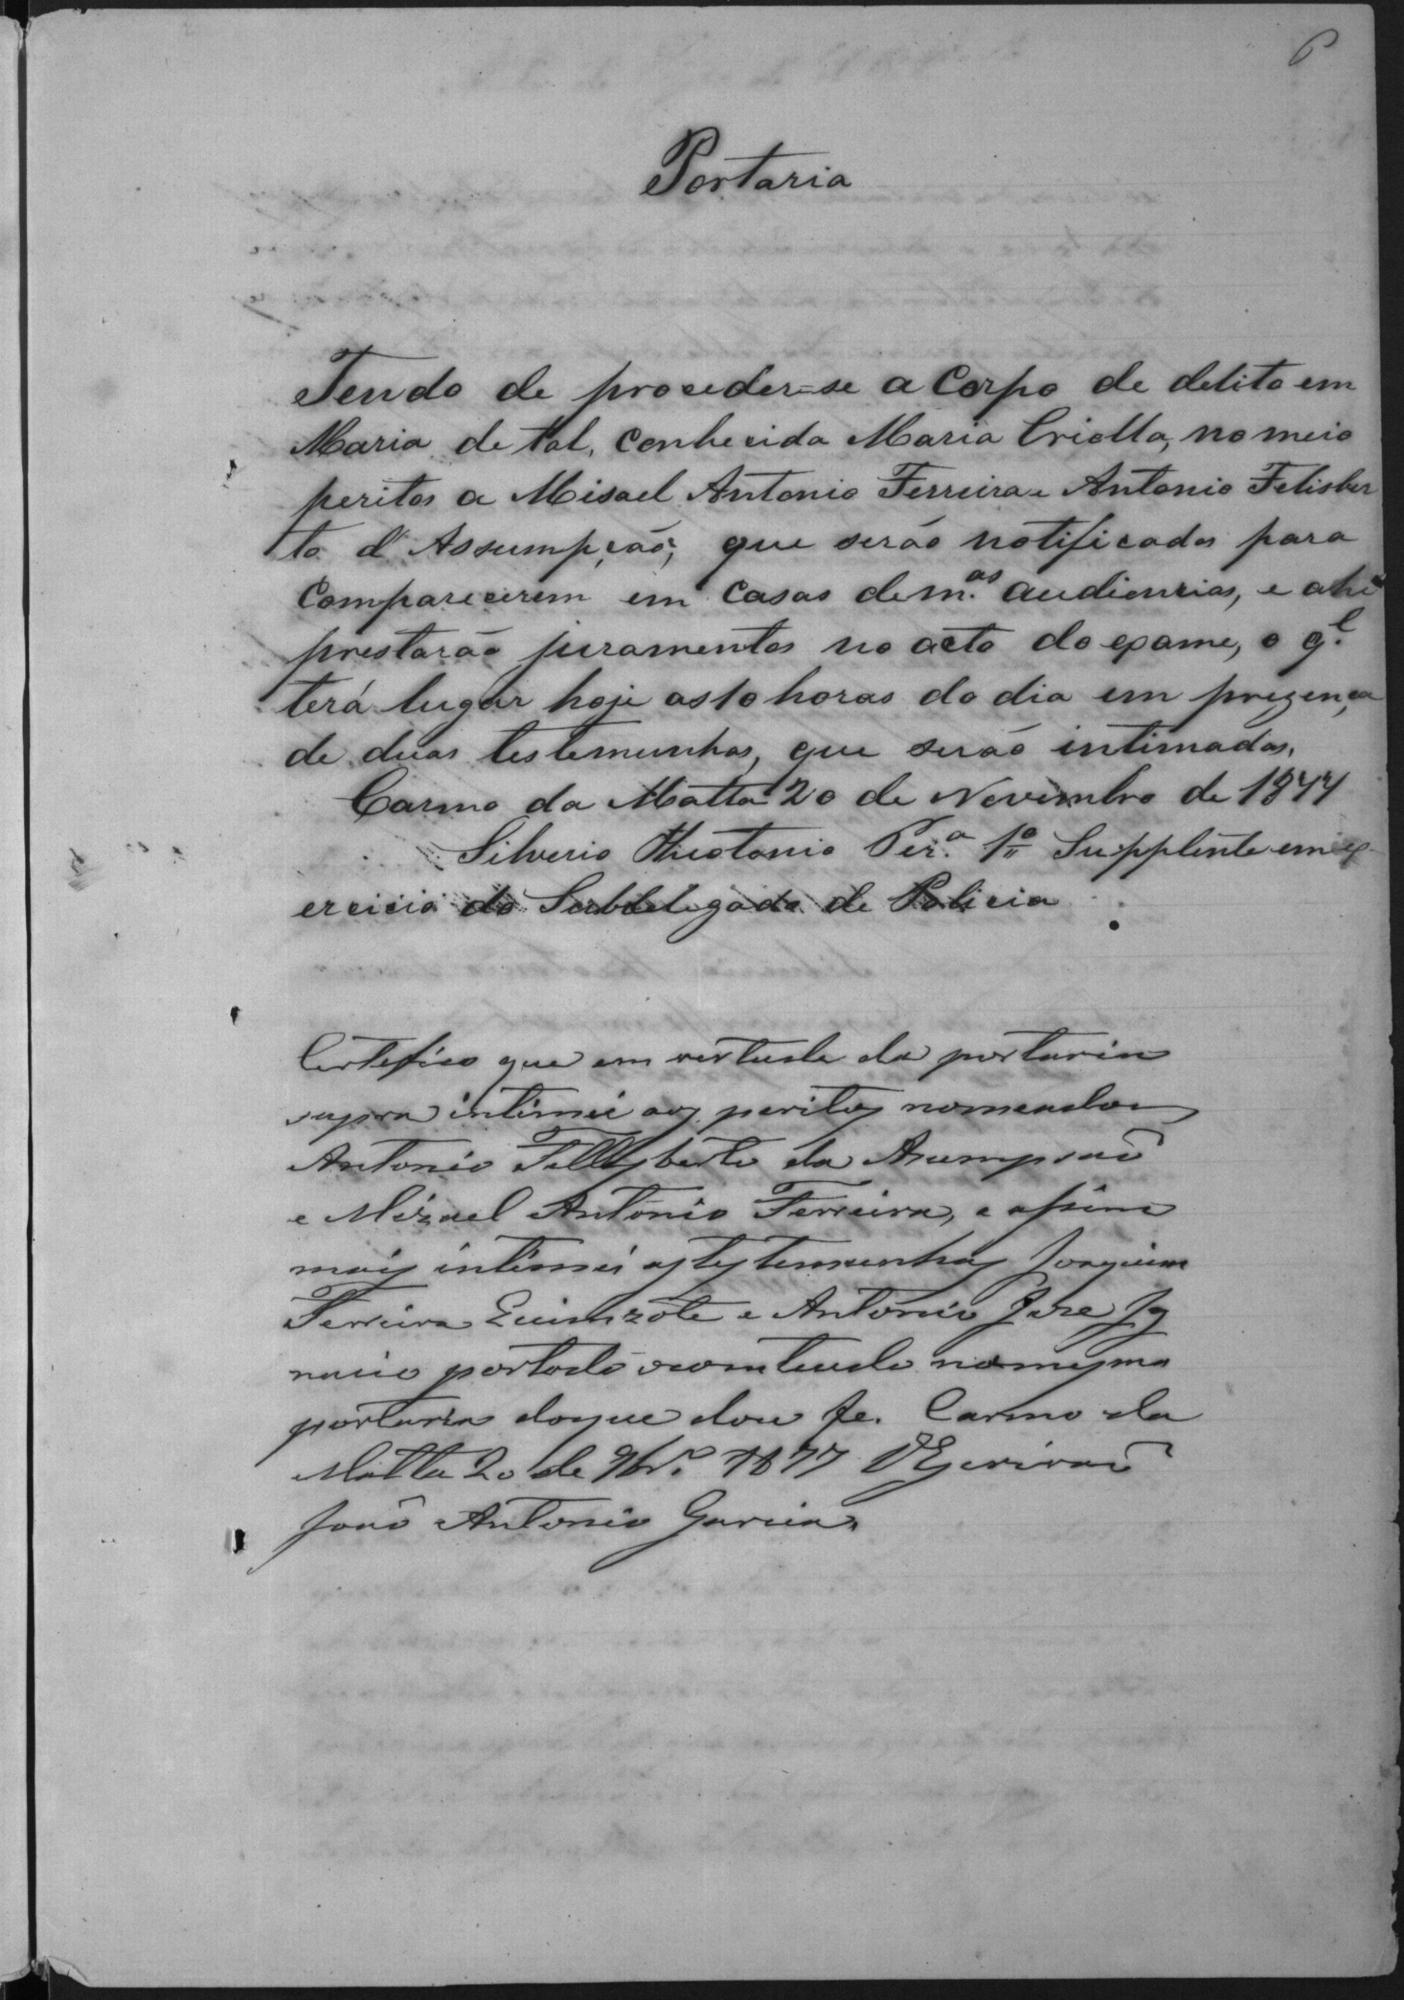 6
Portaria
Tendo de proceder-se a Corpo de delito em
Maria de tal, conhecida Maria Criolla, nomeio
peritos a Misael Antonio Ferreira e Antonio Felisber
to d'Assumpção, que serão notificados para
comparecerem em casas de m.as audiencias, e ahi
prestarão juramentos no acto do exame, o q.l
terá lugar hoje as 10 horas do dia em prezença
de duas testemunhas, que serão intimadas.
Carmo da Matta 20 de Novembro de 1877
Silverio Theotonio Per.a 1º Supplente em ex
ercicio do Subdelegado de Policia
Certefico que em vertude da portaria
supra intimei aos peritos nomeados
Antonio Fellisberto da Asumpsaõ
e Mizael Antonio Ferreira, e assim
mais intimei as testemunhas Joaquim
Ferreira e Antonio Jose Ig
nacio por todo o comteudo na mesma
portaria do que dou fe. Carmo da
Matta 20 de 9br.o 1877 O Escrivaõ
Joaõ Antonio Garcia.